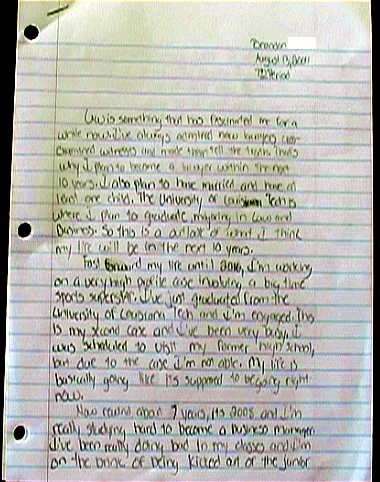 Brandon
August 13, 2001
7th Period
Law is something that has fascinated me for a
while now. I've always admired how lawyers cross
examined witness and made them tell the truth. That's
why I plan to become a lawyer within the next
10 years. I also plan to have married and have at
least one child. The University of Louisiana Tech is
where I plan to graduate majoring in Law and
Business. So this is a outlook of what I think
my life will be in the next 10 years.
Fast forward my life until I'm working
on a very high profile case involving a big time
sports superstar. I've just graduated from the
University of Louisiana Tech and I'm engaged. This
is my second case and I've been very busy. I
was scheduled to visit my former high school,
but due to the case I'm not able. My life is
basically going like its supposed to be going right
now.
Now rewind about 7 years, its 2003 and I'm
really studying hard to become a business manager
I've been really doing bad in my classes and I'm
on the brink of being kicked of the Junior